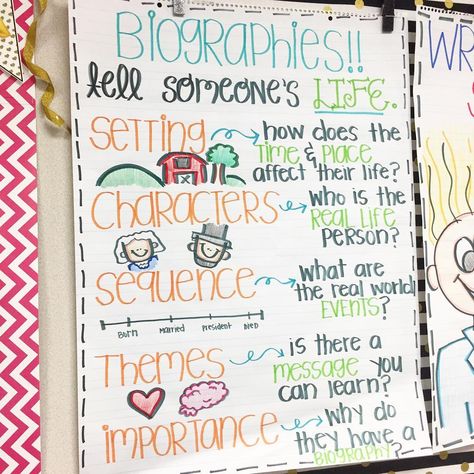 BIOGRAPHIES!!
tell SOMEONE'S LIFE.
SETTING how does the
TIME & PLACE
affect their life?
CHARACTERS who is the
REAL LIFE
PERSON?
SEQUENCE what are
the real world
EVENTS?
Born Married President Died
THEMES is there a
MESSAGE you
can learn?
IMPORTANCE why do
they have a
BIOGRAPHY?
WR